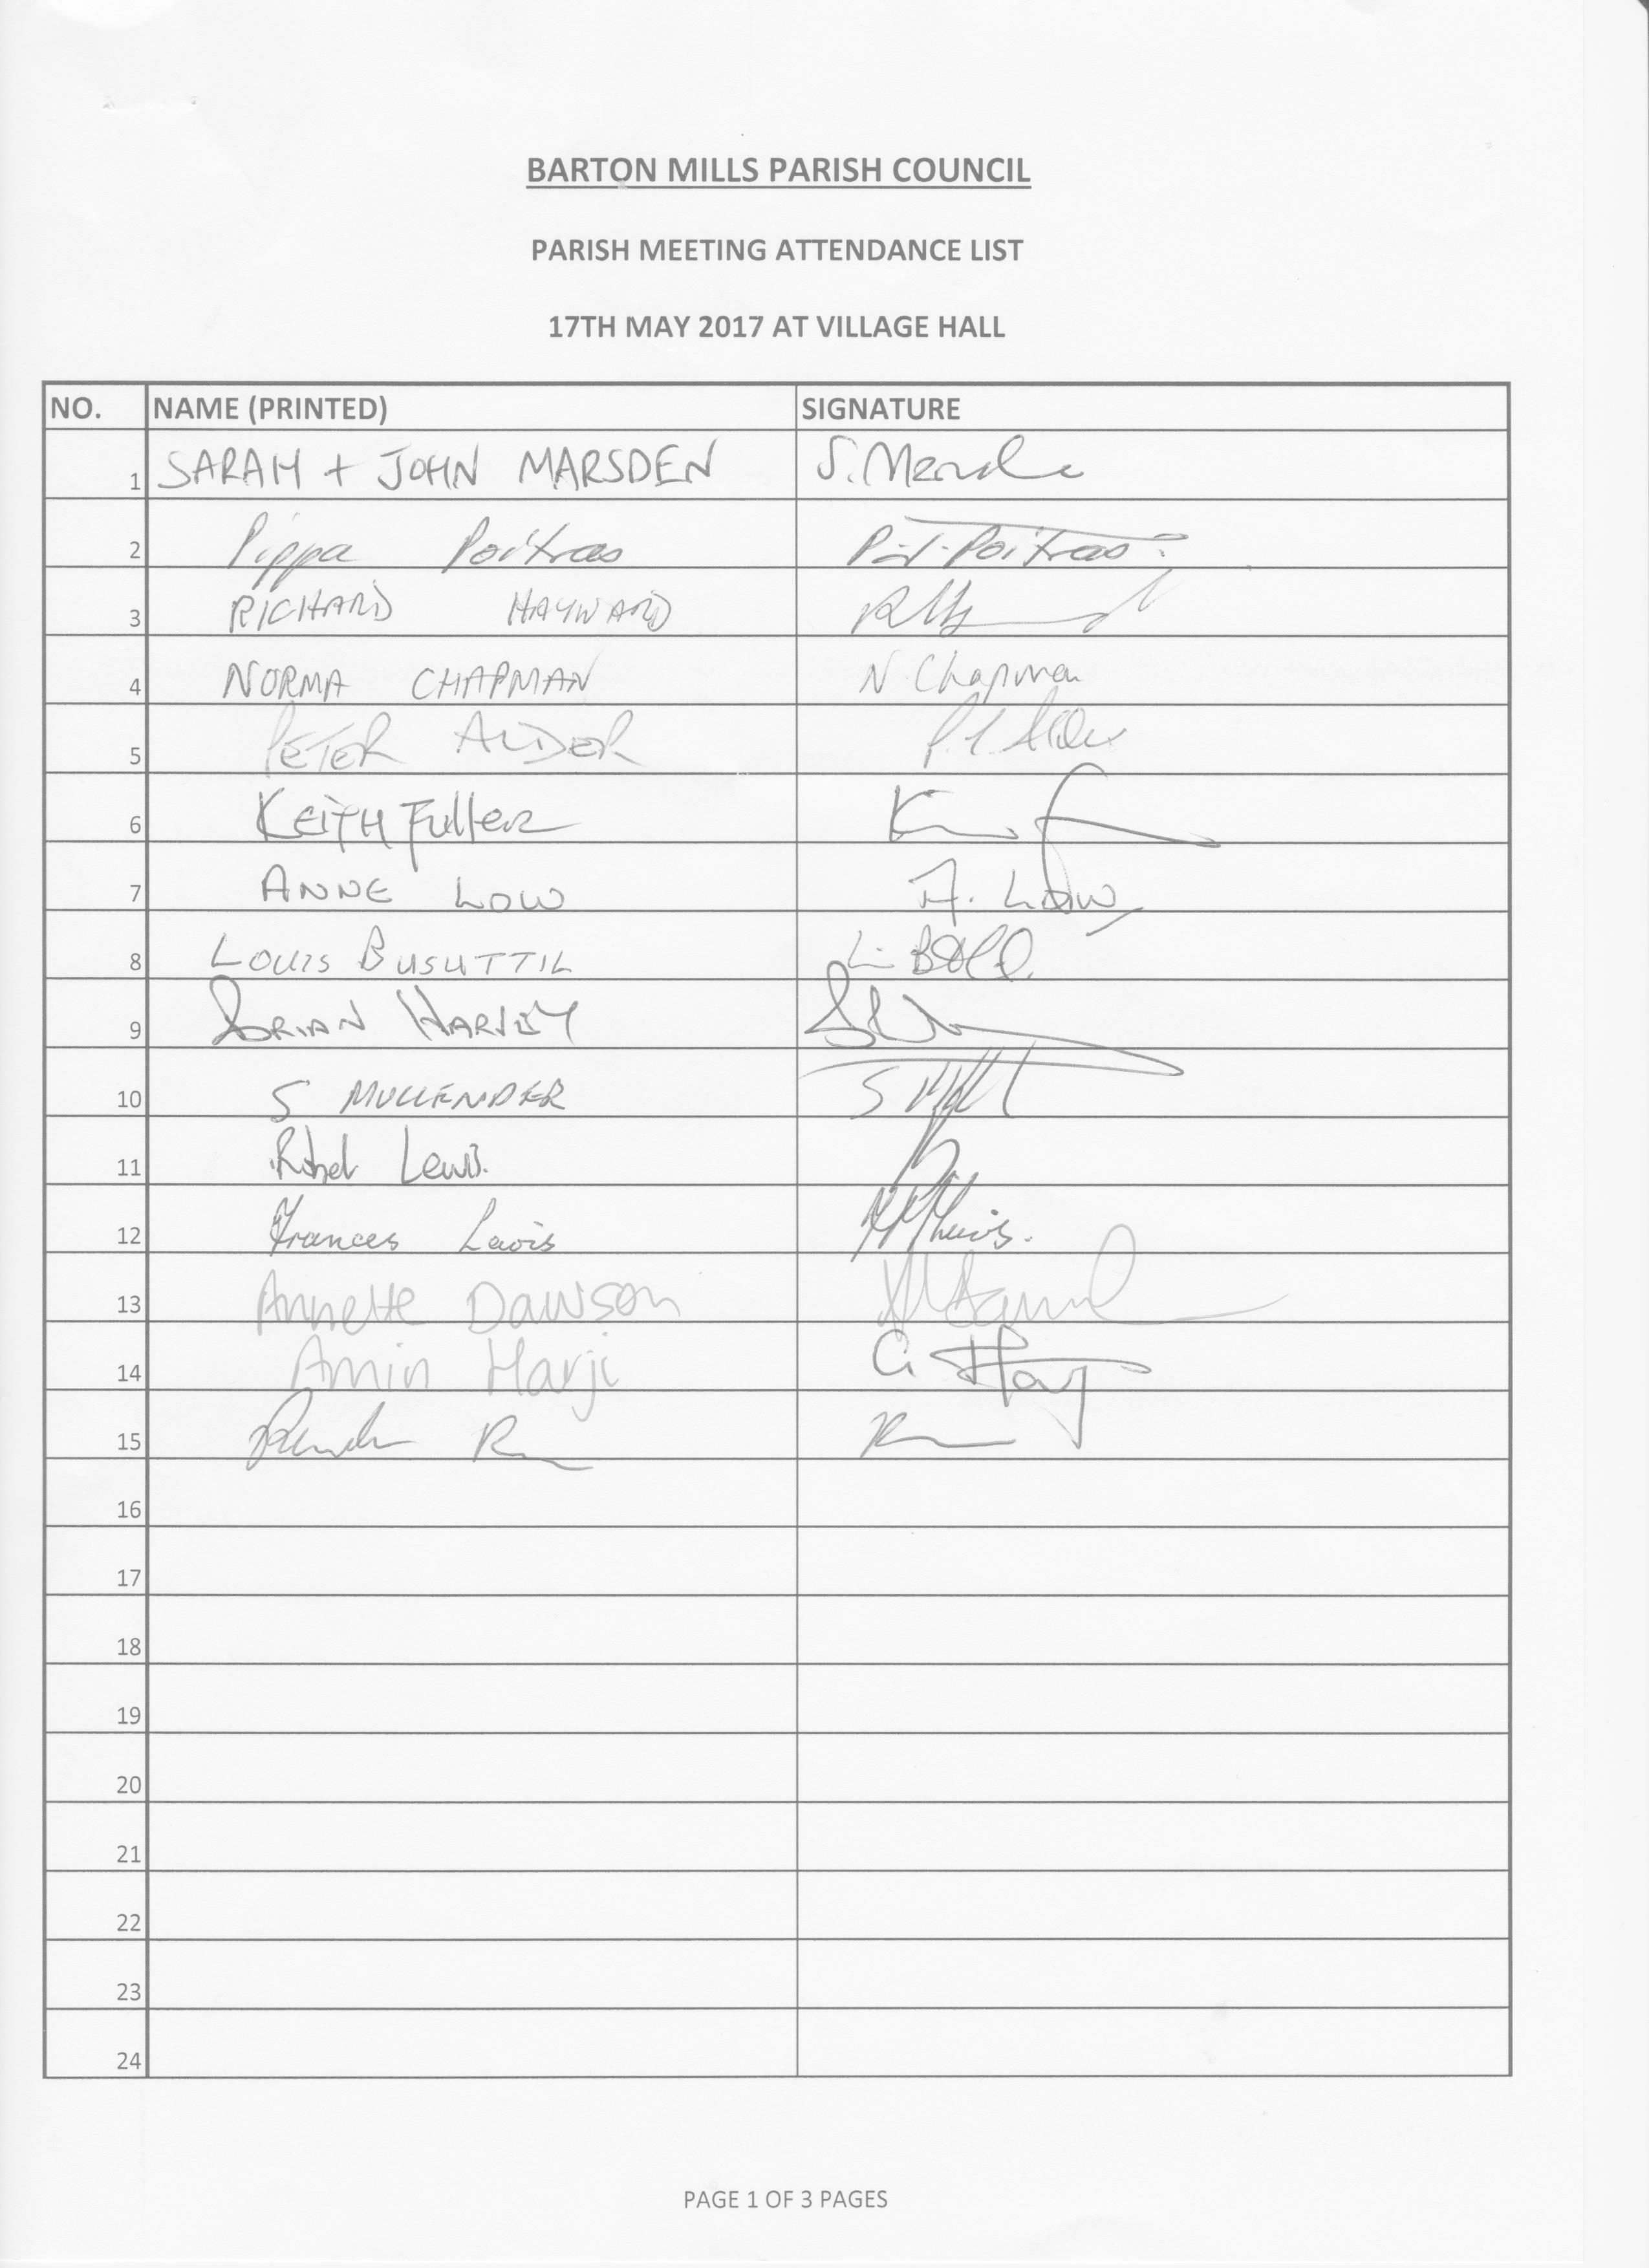 BARTON MILLS PARISH COUNCIL
PARISH MEETING ATTENDANCE LIST
17TH MAY 2017 AT VILLAGE HALL
NO. NAME (PRINTED) SIGNATURE
1 SARAH + JOHN MARSDEN S.
2 Pippa Poitras Poitras
3 RICHARD HAYWARD
4 NORMA CHAPMAN N. Chapman
5 PETER ALDER
6 KEITH Fuller
7 ANNE LOW A. Low
8 LOUIS BUSUTTIL L.
9 BRIAN HARVEY
10 S MULLENDER S
11 Lewis.
12 Frances Lewis Lewis.
13 Annette Dawson
14 Amin Harji
15
16
17
18
19
20
21
22
23
24
PAGE 1 OF 3 PAGES